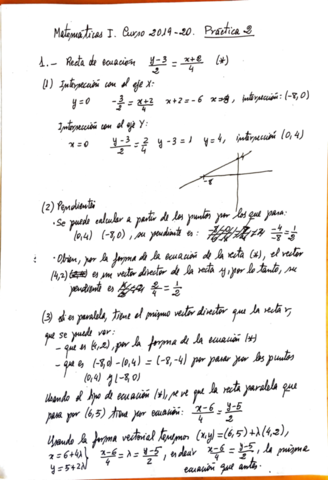 Matemáticas I. Curso 2019-20. Práctica 2
1.- Recta de ecuación (y-3)/2 = (x+2)/4 (*)
(1) Intersección con el eje X:
y=0 -3/2 = (x+2)/4 x+2=-6 x=-8, intersección: (-8,0)
Intersección con el eje Y:
x=0 (y-3)/2 = 2/4 y-3=1 y=4, intersección (0,4)
4
-8
(2) Pendientes
· Se puede calcular a partir de los puntos por los que pasa:
(0,4) (-8,0), su pendiente es: -4/-8 = 1/2
· O bien, por la forma de la ecuación de la recta (*), el vector
(4,2) es un vector director de la recta y, por lo tanto, su
pendiente es 2/4 = 1/2
(3) Si es paralela, tiene el mismo vector director que la recta r,
que se puede ver:
- que es (4,2), por la forma de la ecuación (*)
- que es (-8,0)-(0,4) = (-8,-4) por pasar por los puntos
(0,4) y (-8,0)
Usando el tipo de ecuación (*), se ve que la recta paralela que
pasa por (6,5), tiene por ecuación: (x-6)/4 = (y-5)/2
Usando la forma vectorial tenemos (x,y)=(6,5)+λ(4,2),
x=6+4λ
y=5+2λ } (x-6)/4 = λ = (y-5)/2, es decir (x-6)/4 = (y-5)/2, la misma
ecuación que antes.